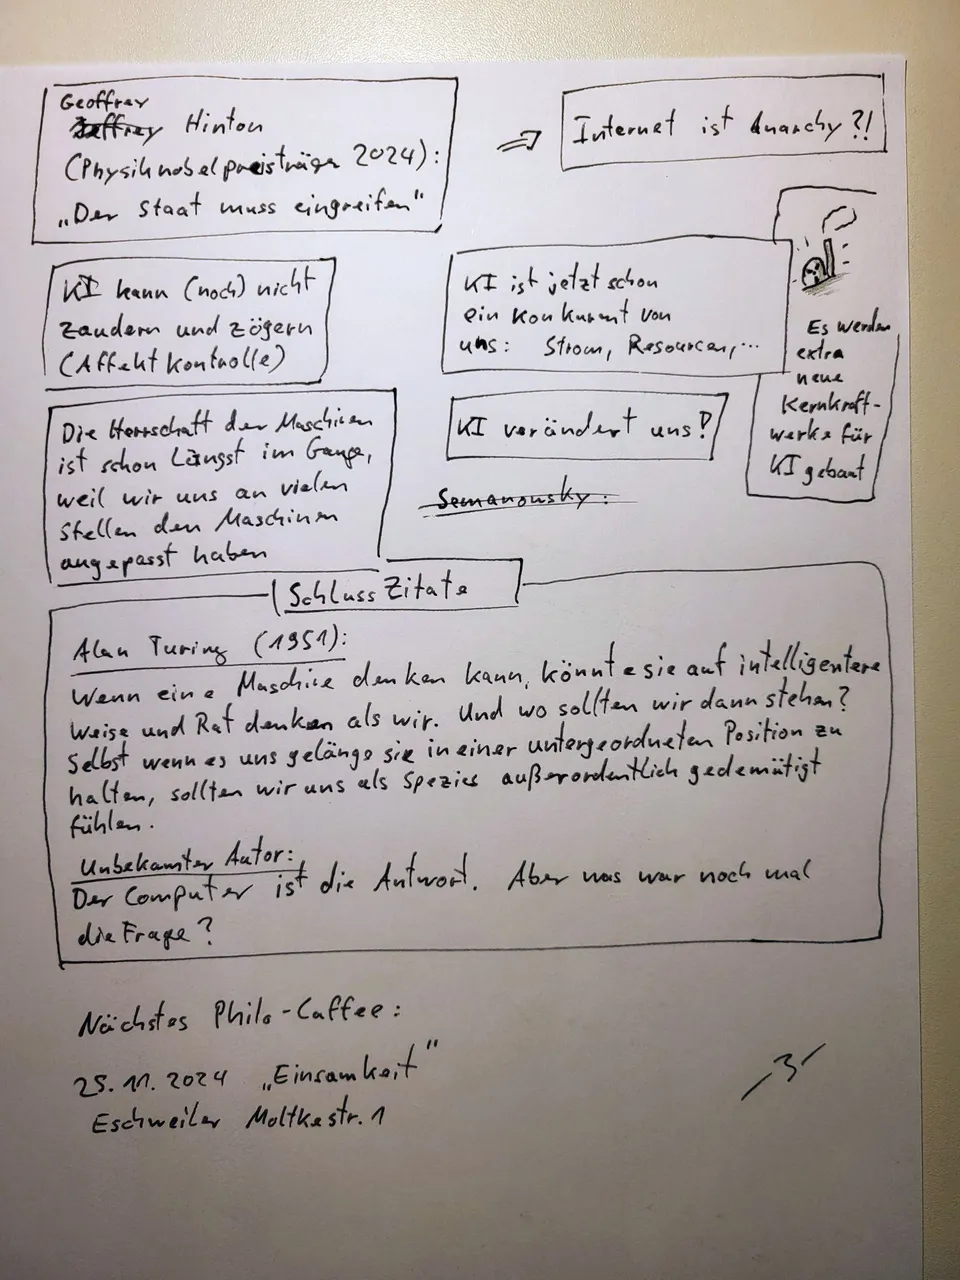 Geoffrey
Jeffrey Hinton
(Physiknobelpreisträger 2024):
„Der Staat muss eingreifen"
⇒ Internet ist Anarchy?!
KI kann (noch) nicht
zaudern und zögern
(Affektkontrolle)
KI ist jetzt schon
ein Konkurent von
uns: Strom, Resourcen,...
Es werden
extra
neue
Kernkraft-
werke für
KI gebaut
Die Herrschaft der Maschinen
ist schon Längst im Gange,
weil wir uns an vielen
Stellen den Maschinen
angepasst haben
KI verändert uns?
Semanowsky:
SchlussZitate
Alan Turing (1951):
Wenn eine Maschine denken kann, könnte sie auf intelligentere
Weise und Rat denken als wir. Und wo sollten wir dann stehen?
Selbst wenn es uns gelänge sie in einer untergeordneten Position zu
halten, sollten wir uns als Spezies außerordentlich gedemütigt
fühlen.
Unbekannter Autor:
Der Computer ist die Antwort. Aber was war noch mal
die Frage?
Nächstes Philo-Caffee:
25.11.2024 „Einsamkeit"
Eschweiler Moltkestr. 1
-3-